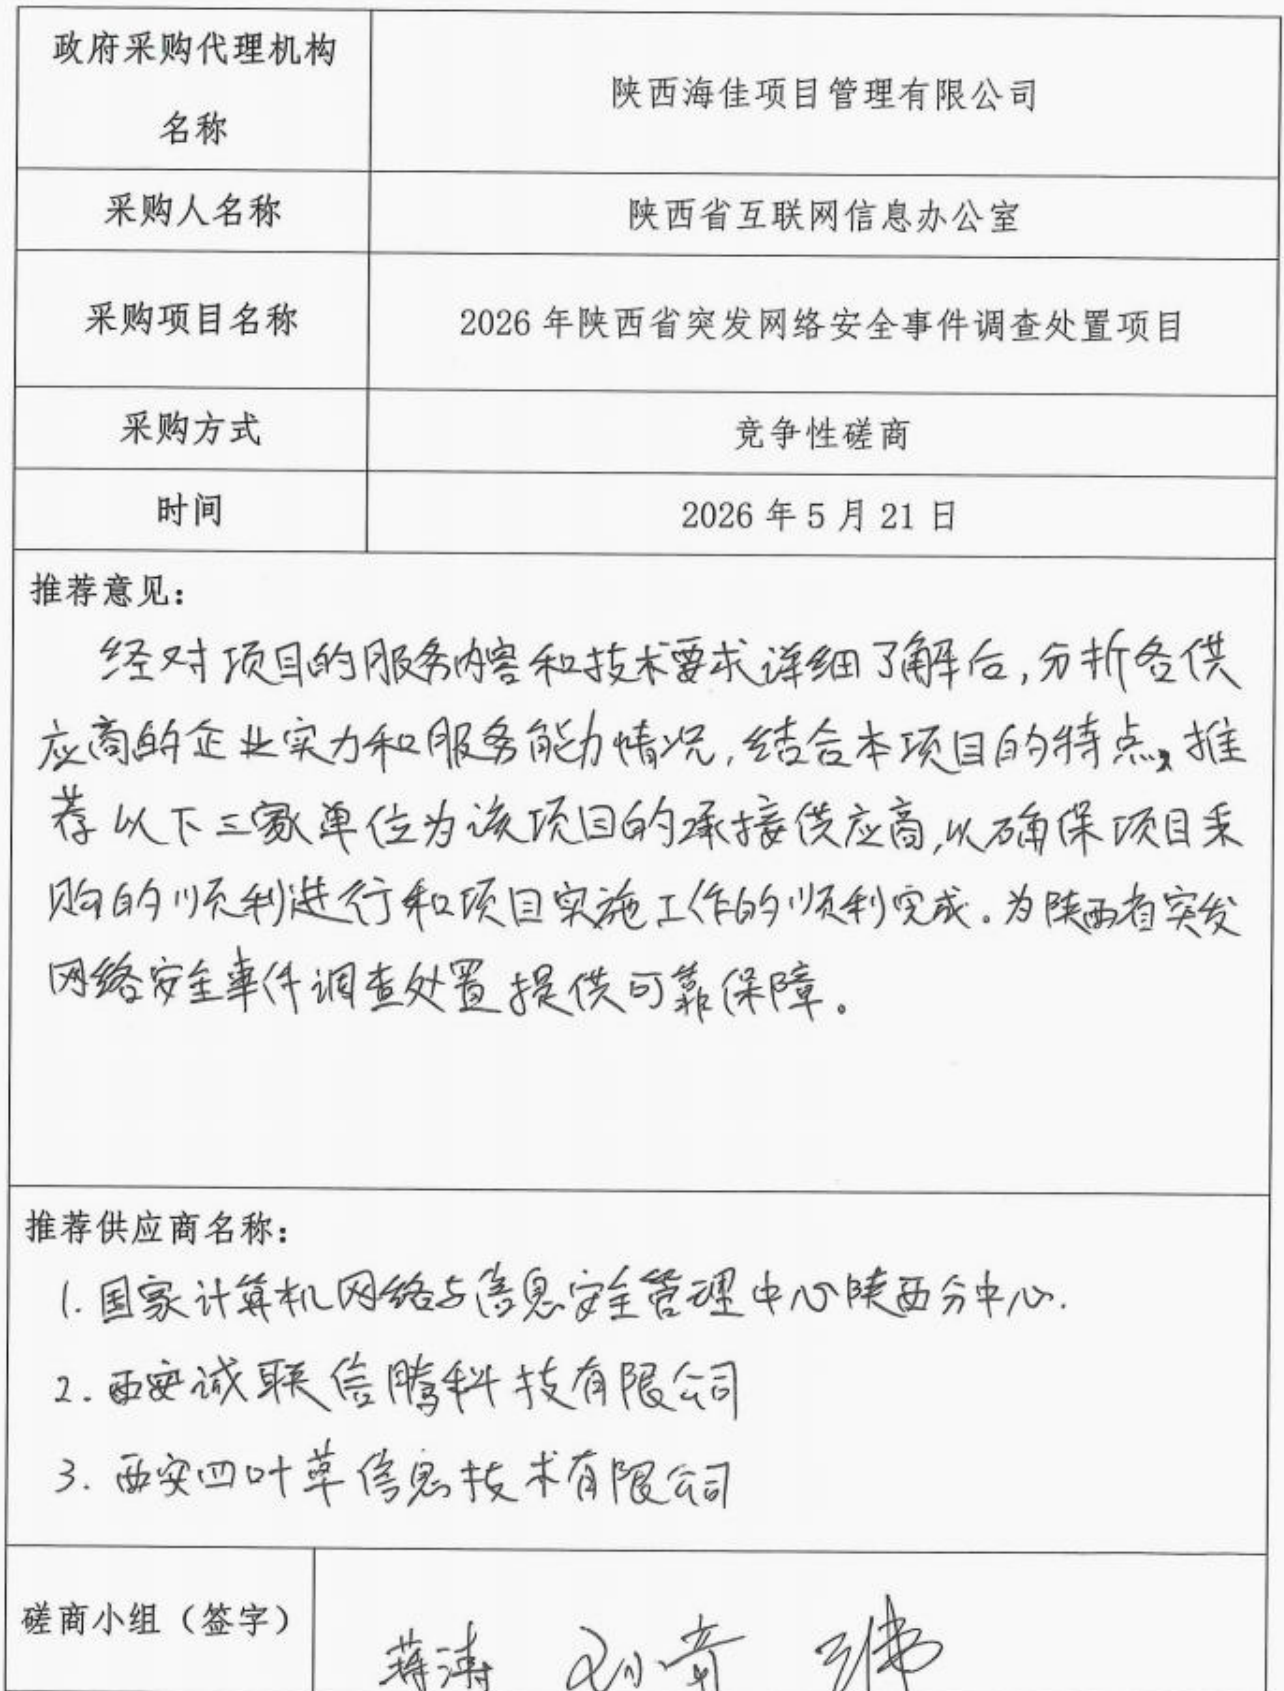 政府采购代理机构
名称
陕西海佳项目管理有限公司
采购人名称
陕西省互联网信息办公室
采购项目名称
2026 年陕西省突发网络安全事件调查处置项目
采购方式
竞争性磋商
时间
2026 年 5 月 21 日
推荐意见：
经对项目的服务内容和技术要求详细了解后,分析各供
应商的企业实力和服务能力情况,结合本项目的特点,推
荐以下三家单位为该项目的承接供应商,以确保项目采
购的顺利进行和项目实施工作的顺利完成。为陕西省突发
网络安全事件调查处置提供可靠保障。
推荐供应商名称：
1.国家计算机网络与信息安全管理中心陕西分中心.
2.西安诚联信腾科技有限公司
3.西安四叶草信息技术有限公司
磋商小组（签字）
蒋涛